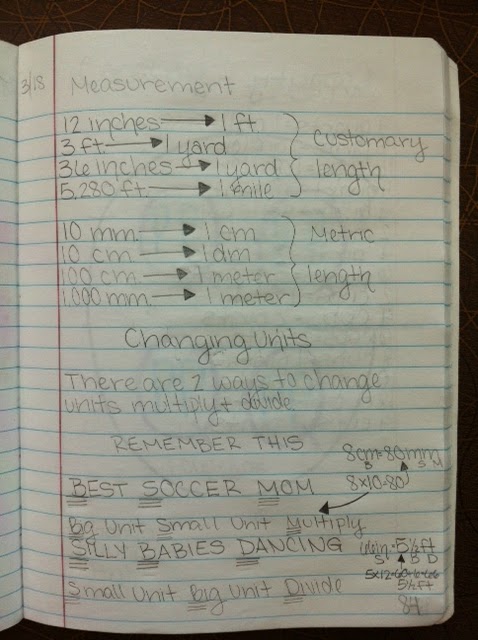 3/18
Measurement
12 inches → 1 ft.
3 ft → 1 yard
36 inches → 1 yard
5,280 ft. → 1 mile
Customary
length
10 mm. → 1 cm
10 cm → 1 dm
100 cm → 1 meter
1,000 mm. → 1 meter
Metric
length
Changing Units
There are 2 ways to change
units multiply + divide.
REMEMBER THIS
8cm=80mm
B S M
8x10=80
BEST SOCCER MOM
Big Unit Small Unit Multiply
SILLY BABIES DANCING
5½ ft
S B D
Small Unit Big Unit Divide
5½ ft